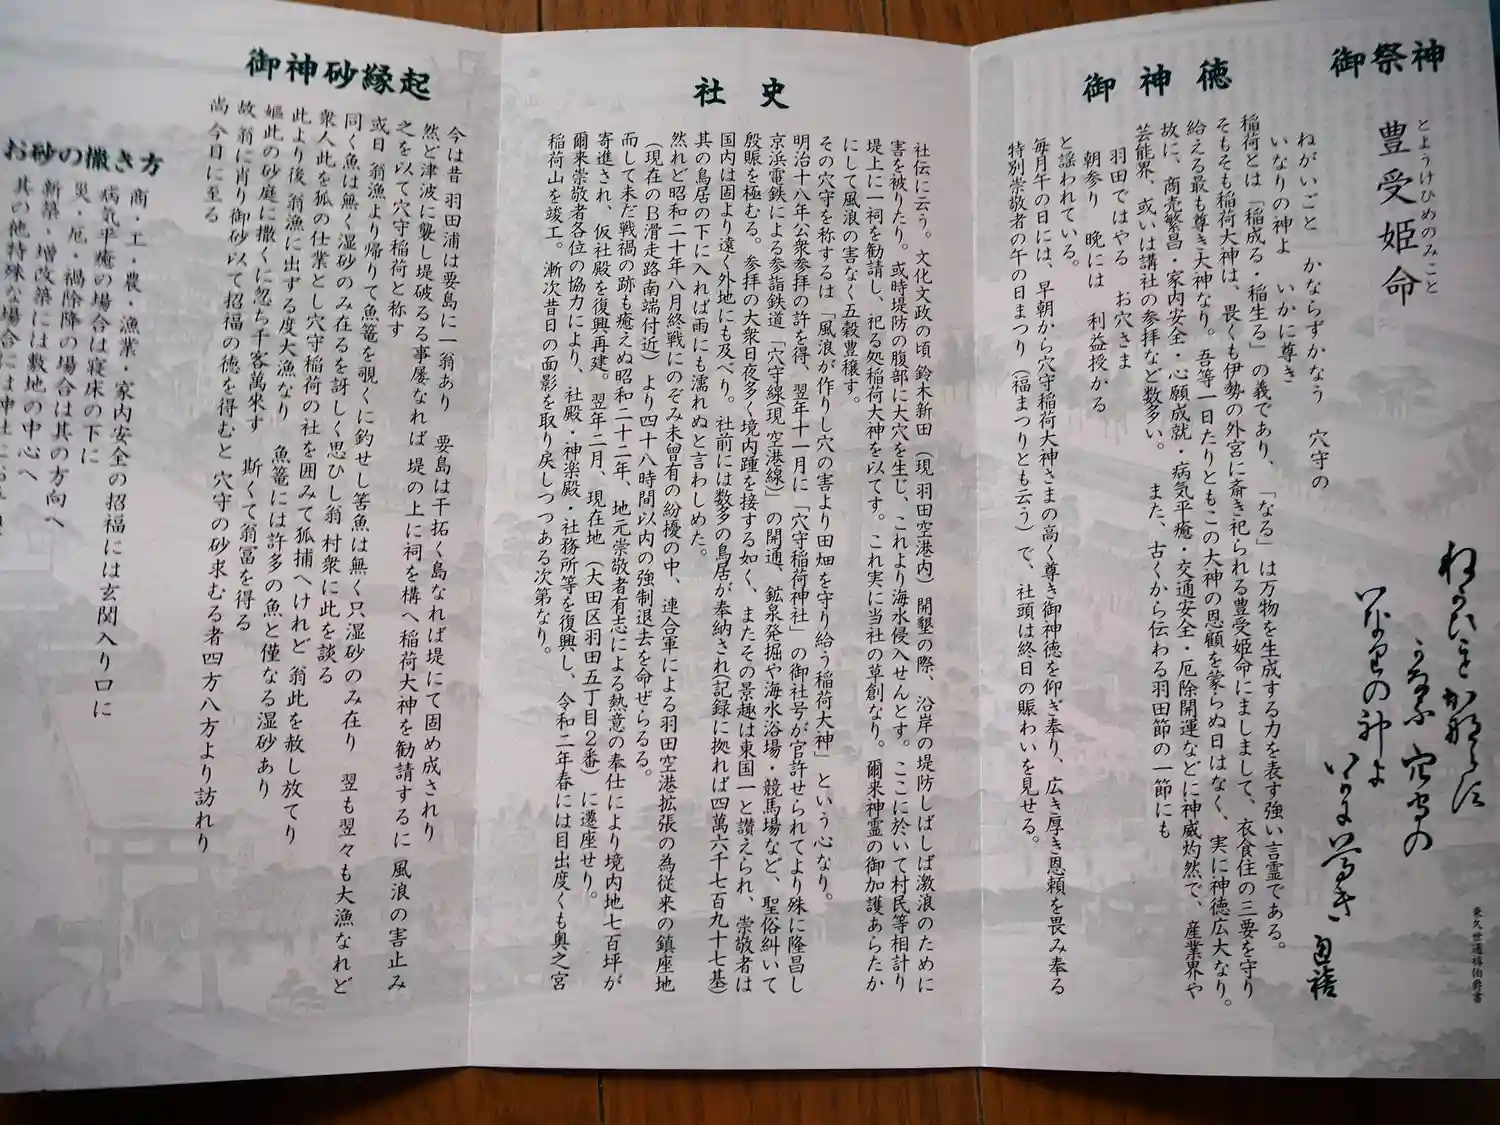 御祭神
とようけひめのみこと
豊受姫命
ねがいごと かならずかなう 穴守の
いなりの神よ いかに尊き
東久世通禧伯爵書
御神徳
ねがいごと かならずかなう 穴守の
いなりの神よ いかに尊き
稲荷とは「稲成る・稲生る」の義であり、「なる」は万物を生成する力を表す強い言霊である。
そもそも稲荷大神は、畏くも伊勢の外宮に斎き祀られる豊受姫命にましまして、衣食住の三要を守り
給える最も尊き大神なり。吾等一日たりともこの大神の恩顧を蒙らぬ日はなく、実に神徳広大なり。
故に、商売繁昌・家内安全・心願成就・病気平癒・交通安全・厄除開運などに神威灼然で、産業界や
芸能界、或いは講社の参拝など数多い。また、古くから伝わる羽田節の一節にも
羽田ではやる お穴さま
朝参り 晩には 利益授かる
と謡われている。
毎月午の日には、早朝から穴守稲荷大神さまの高く尊き御神徳を仰ぎ奉り、広き厚き恩頼を畏み奉る
特別崇敬者の午の日まつり（福まつりとも云う）で、社頭は終日の賑わいを見せる。
社史
社伝に云う。文化文政の頃 鈴木新田（現 羽田空港内）開墾の際、沿岸の堤防しばしば激浪のために
害を被りたり。或時堤防の腹部に大穴を生じ、これより海水侵入せんとす。ここに於いて村民等相計り
堤上に一祠を勧請し、祀る処稲荷大神を以てす。これ実に当社の草創なり。爾来神霊の御加護あらたか
にして風浪の害なく五穀豊穣す。
その穴守を称するは「風浪が作りし穴の害より田畑を守り給う稲荷大神」という心なり。
明治十八年公衆参拝の許を得、翌年十一月に「穴守稲荷神社」の御社号が官許せられてより殊に隆昌し
京浜電鉄による参詣鉄道「穴守線（現 空港線）」の開通、鉱泉発掘や海水浴場・競馬場など、聖俗糾いて
殷賑を極むる。参拝の大衆日夜多く境内踵を接する如く、またその景趣は東国一と讃えられ、崇敬者は
国内は固より遠く外地にも及べり。社前には数多の鳥居が奉納され（記録に拠れば四萬六千七百九十七基）
其の鳥居の下に入れば雨にも濡れぬと言わしめた。
然れど昭和二十年八月終戦にのぞみ未曾有の紛擾の中、連合軍による羽田空港拡張の為従来の鎮座地
（現在のB滑走路南端付近）より四十八時間以内の強制退去を命ぜらるる。
而して未だ戦禍の跡も癒えぬ昭和二十二年、地元崇敬者有志による熱意の奉仕により境内地七百坪が
寄進され、仮社殿を復興再建。翌年二月、現在地（大田区羽田五丁目2番）に遷座せり。
爾来崇敬者各位の協力により、社殿・神楽殿・社務所等を復興し、令和二年春には目出度くも奥之宮
稲荷山を竣工。漸次昔日の面影を取り戻しつつある次第なり。
御神砂縁起
今は昔 羽田浦は要島に一翁あり 要島は干拓く島なれば堤にて固め成されり
然ど津波に襲し堤破るる事屡なれば 堤の上に祠を構へ稲荷大神を勧請するに 風浪の害止み
之を以て穴守稲荷と称す
或日 翁漁より帰りて魚篭を覗くに釣せし筈魚は無く只湿砂のみ在り 翌も翌々も大漁なれど
同く魚は無く湿砂のみ在るを訝しく思ひし翁 村衆に此を談る
衆人此を狐の仕業とし穴守稲荷の社を囲みて狐捕へけれど 翁此を赦し放てり
此より後 翁漁に出ずる度大漁なり 魚篭には許多の魚と僅なる湿砂あり
嫗此の砂庭に撒くに忽ち千客萬来す 斯くて翁冨を得る
故 翁に肖り御砂以て招福の徳を得むと 穴守の砂求むる者四方八方より訪れり
尚 今日に至る
お砂の撒き方
商・工・農・漁業・家内安全の招福には玄関入り口に
病気平癒の場合は寝床の下に
災・厄・禍除降の場合は其の方向へ
新築・増改築には敷地の中心へ
其の他特殊な場合には神社に